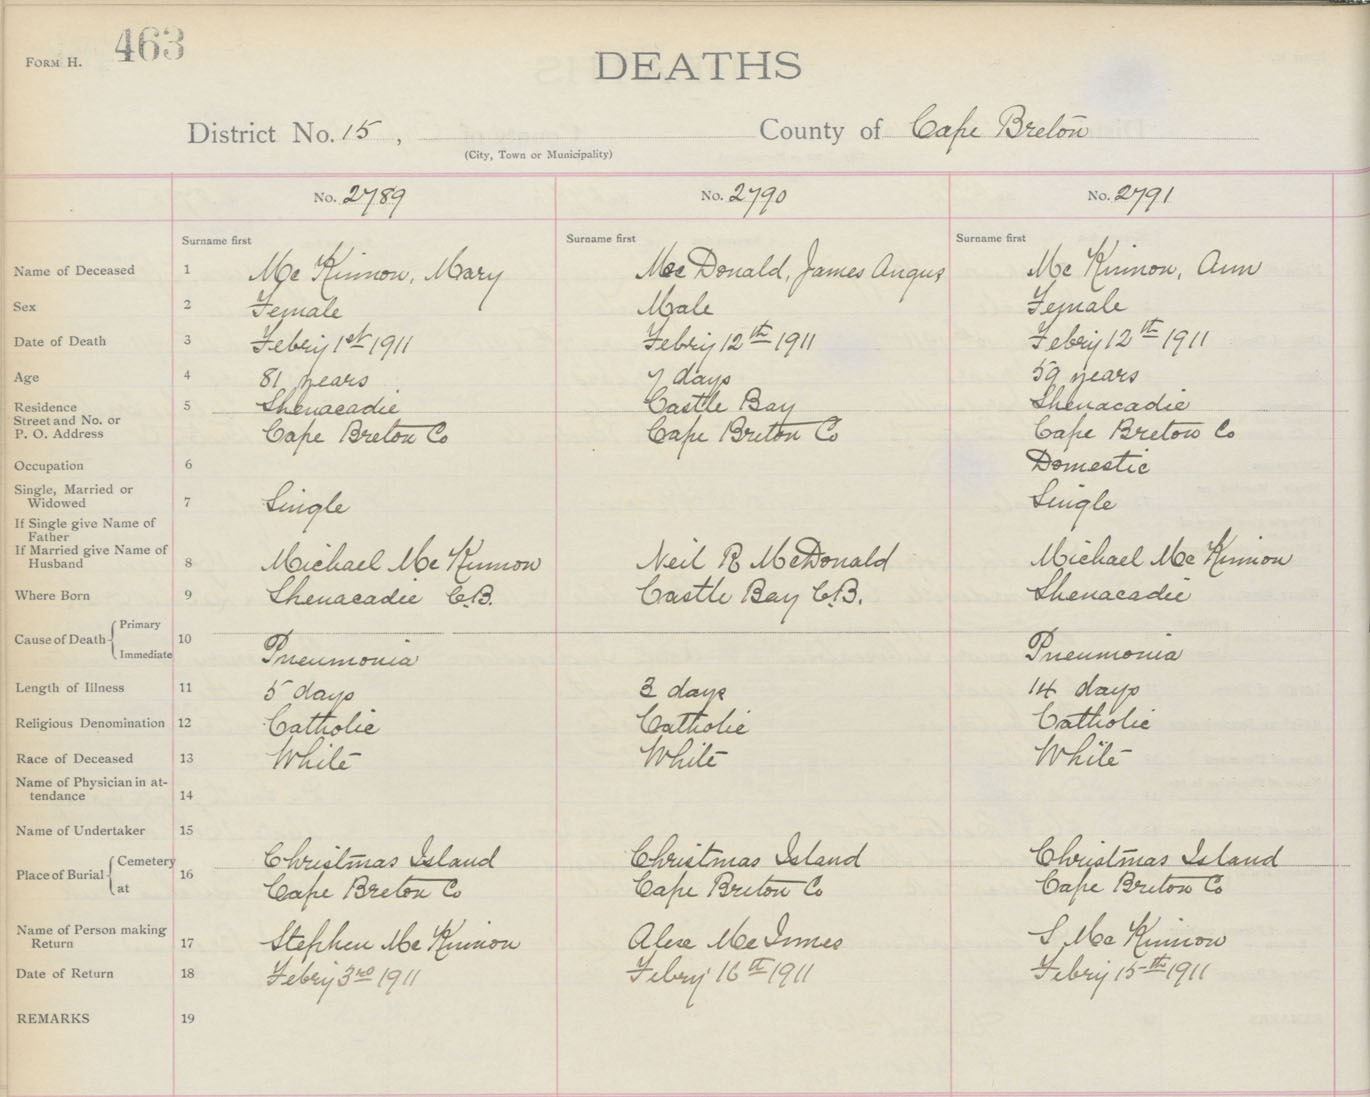 463
FORM H.
DEATHS
District No. 15, County of Cape Breton
(City, Town or Municipality)
No. 2789 No. 2790 No. 2791
Surname first Surname first Surname first
Name of Deceased 1 Mc Kinnon, Mary Mc Donald, James Angus Mc Kinnon, Ann
Sex 2 Female Male Female
Date of Death 3 Febry 1st 1911 Febry 12th 1911 Febry 12th 1911
Age 4 81 years 7 days 59 years
Residence 5 Shenacadie Castle Bay Shenacadie
Street and No. or
P. O. Address Cape Breton Co Cape Breton Co Cape Breton Co
Occupation 6 Domestic
Single, Married or
Widowed 7 Single Single
If Single give Name of
Father
If Married give Name of
Husband 8 Michael Mc Kinnon Neil R McDonald Michael Mc Kinnon
Where Born 9 Shenacadie C.B. Castle Bay C.B. Shenacadie
Cause of Death Primary 10
Immediate Pneumonia Pneumonia
Length of Illness 11 5 days 3 days 14 days
Religious Denomination 12 Catholic Catholic Catholic
Race of Deceased 13 White White White
Name of Physician in at-
tendance 14
Name of Undertaker 15
Place of Burial Cemetery 16 Christmas Island Christmas Island Christmas Island
at Cape Breton Co Cape Breton Co Cape Breton Co
Name of Person making
Return 17 Stephen Mc Kinnon Alex Mc Innes S Mc Kinnon
Date of Return 18 Febry 3rd 1911 Febry 16th 1911 Febry 15th 1911
REMARKS 19